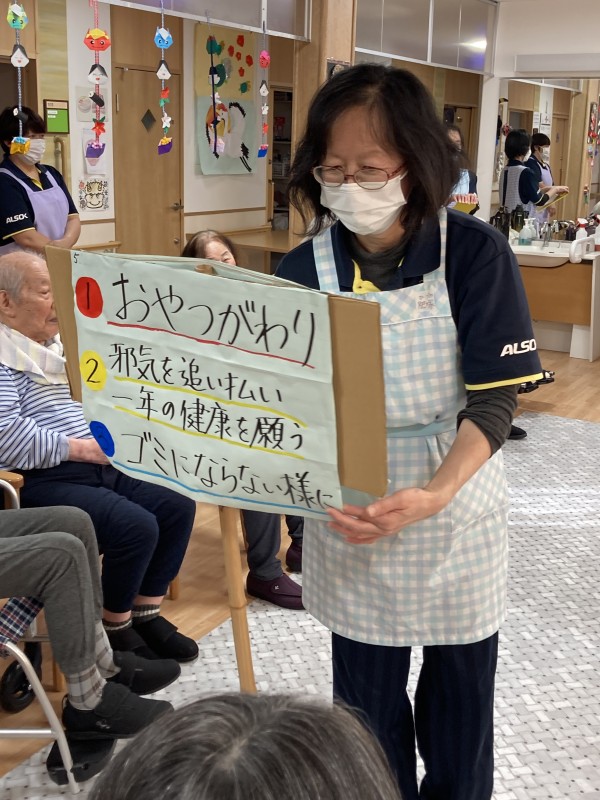 5
1 おやつがわり
2 邪気を追い払い
一年の健康を願う
ゴミにならない様に
ALSOK
ALSOK